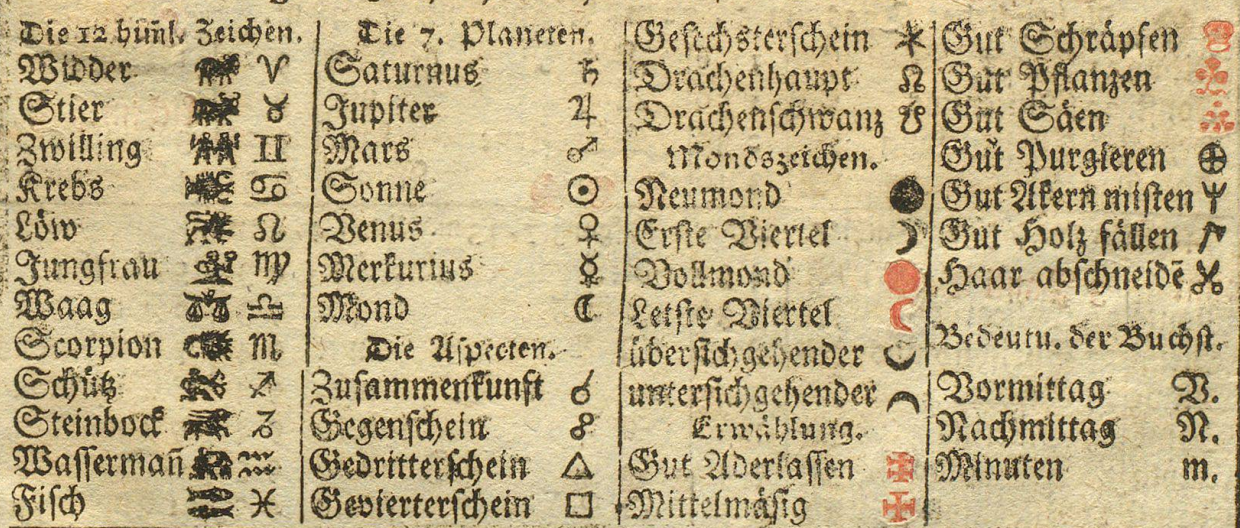 Die 12 himl. Zeichen.
Widder ♈
Stier ♉
Zwilling ♊
Krebs ♋
Löw ♌
Jungfrau ♍
Waag ♎
Scorpion ♏
Schütz ♐
Steinbock ♑
Wassermañ ♒
Fisch ♓
Die 7. Planeten.
Saturnus ♄
Jupiter ♃
Mars ♂
Sonne ☉
Venus ♀
Merkurius ☿
Mond ☾
Die Aspecten.
Zusammenkunft ☌
Gegenschein ☍
Gedritterschein △
Gevierterschein □
Gesechsterschein ⚹
Drachenhaupt ☊
Drachenschwanz ☋
Mondszeichen.
Neumond
Erste Viertel
Vollmond
Letste Viertel
übersichgehender
untersichgehender
Erwählung.
Gut Aderlassen
Mittelmäsig
Gut Schräpfen
Gut Pflanzen
Gut Säen
Gut Purgieren
Gut Akern misten
Gut Holz fällen
Haar abschneidē
Bedeutu. der Buchst.
Vormittag V.
Nachmittag N.
Minuten m.